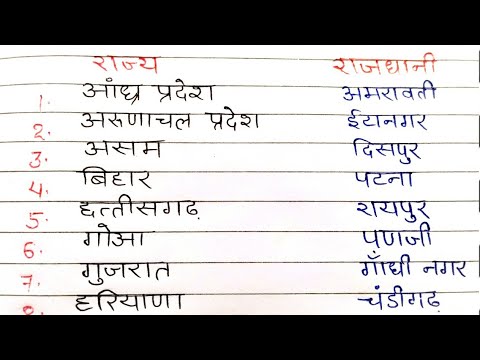 राज्य राजधानी
1. आंध्र प्रदेश अमरावती
2. अरूणाचल प्रदेश ईटानगर
3. असम दिसपुर
4. बिहार पटना
5. छत्तीसगढ़ रायपुर
6. गोआ पणजी
7. गुजरात गाँधी नगर
हरियाणा चंडीगढ़